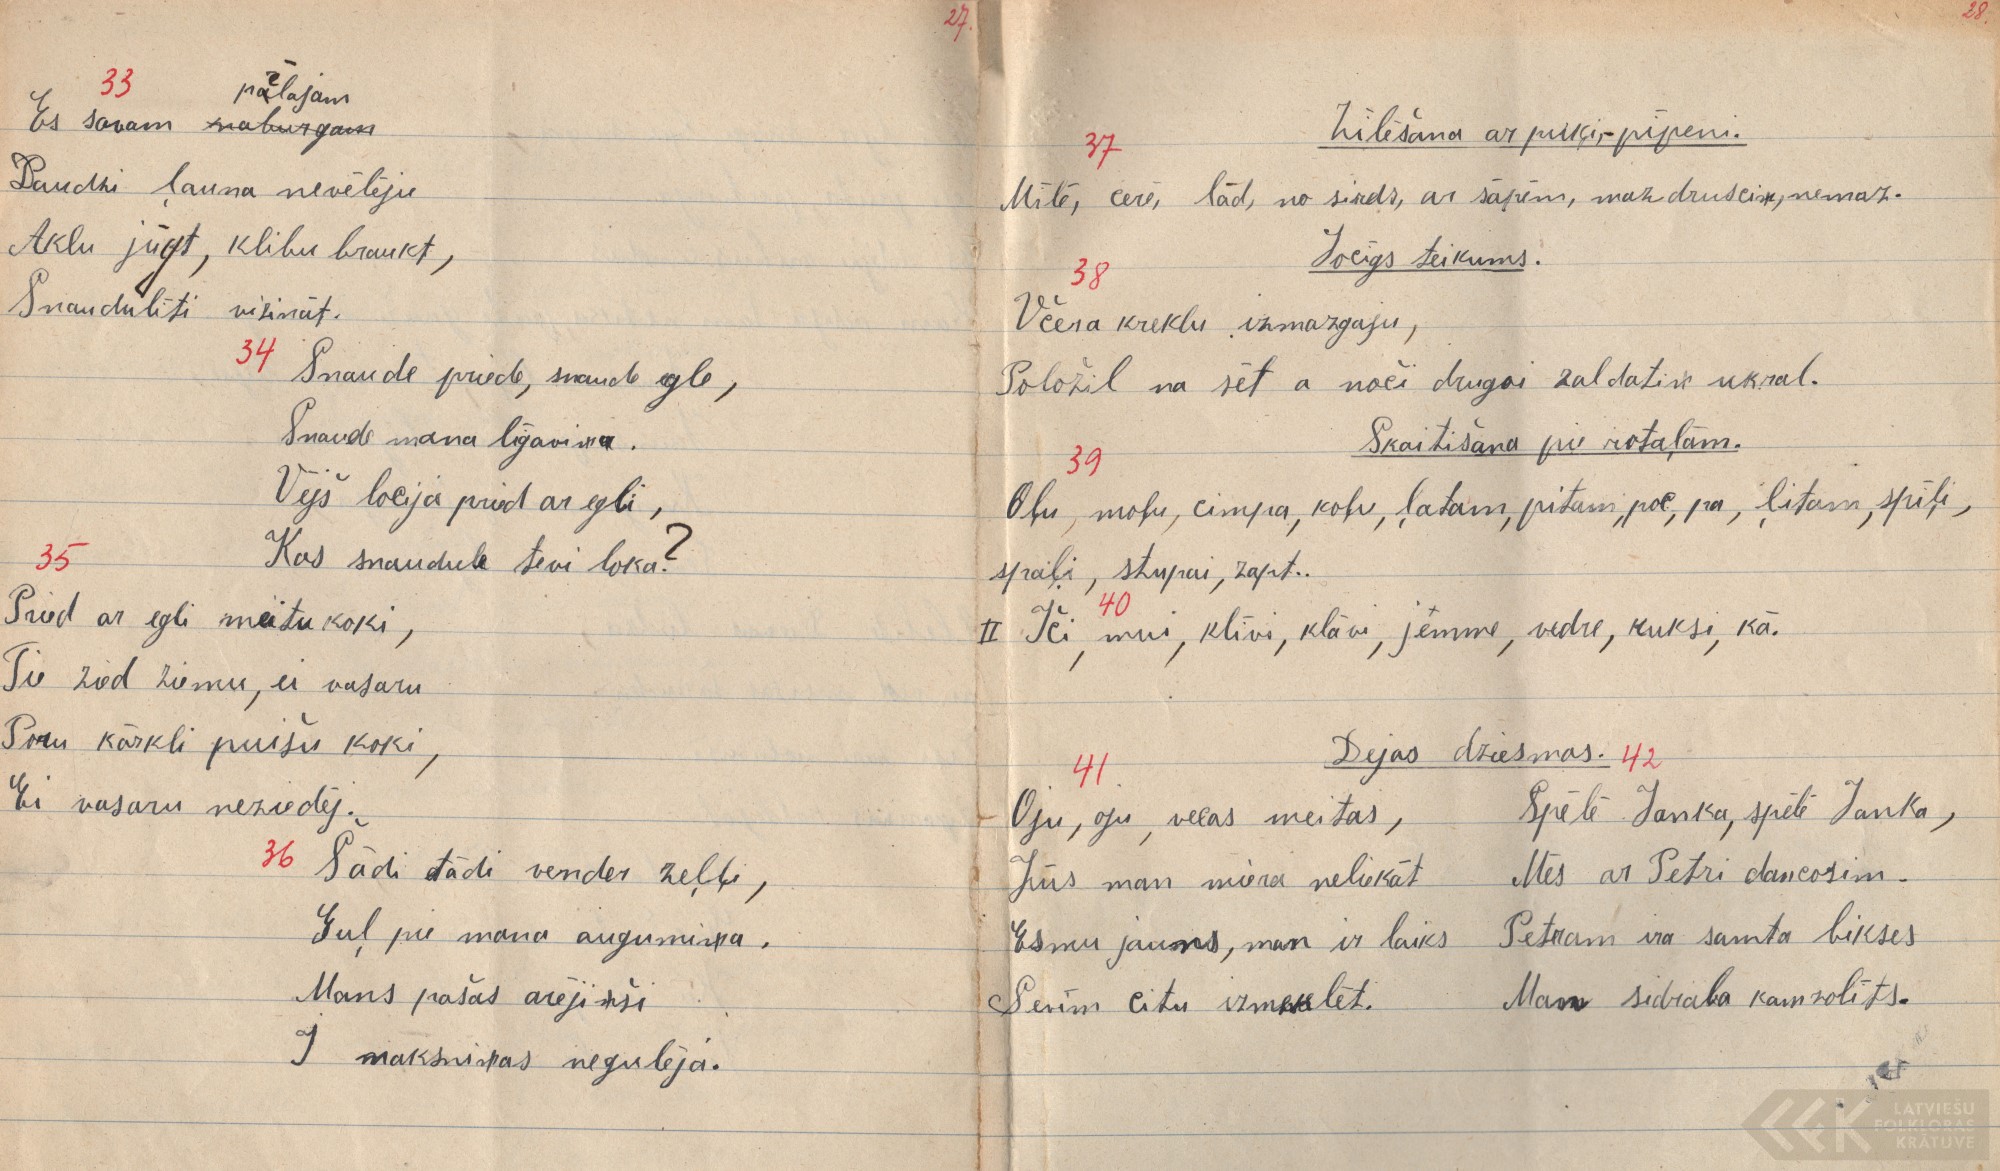 27.
33
pēlajam
Es savam naburgam
Daudzi ļauna nevēlēju
Aklu jūgt, klibu braukt,
Snaudulīti vizināt.
34
Snaude priede, snaude egle,
Snaude mana līgaviņa.
Vējš locīja pried ar egli,
Kas snaudule tevi loka?
35
Pried ar egli meitu koki,
Tie zied ziemu, ei vasaru
Poru kārkli puišu koki,
Ei vasaru neziedēj.
36
Šādi tādi vender zeļļi,
Guļ pie mana augumiņa.
Mans pašas arējiņši
I maksniņas negulēja.
28.
Zīlēšana ar puķi,-pīpeni.
37
Mīlē, cerē, lād, no sirds, ar sāpēm, maz drusciņ, nemaz.
Jocīgs teikums.
38
Včera kreklu izmazgaju,
Položil na sēt a noči drugoi zaldatiņ ukral.
Skaitīšana pie rotaļām.
39
Oļu, moļu, cimpa, koļu, ļatam, pitam, poc, pa, ļitam, spiļi,
spaļi, stupai, zapt..
40
II Iči, mui, klīvi, klāvi, jēmme, vedre, ruksi, kā.
Dejas dziesmas.
41
Oju, oju, vecas meitas,
Jūs man miera neliekāt
Esmu jauns, man ir laiks
Sevīm citu izmeklēt.
42
Spēlē Janka, spēlē Janka,
Mēs ar Petri dancosim.
Petram ira samta bikses
Man sidraba kamzolīts.
LATVIEŠU
FOLKLORAS
KRĀTUVE